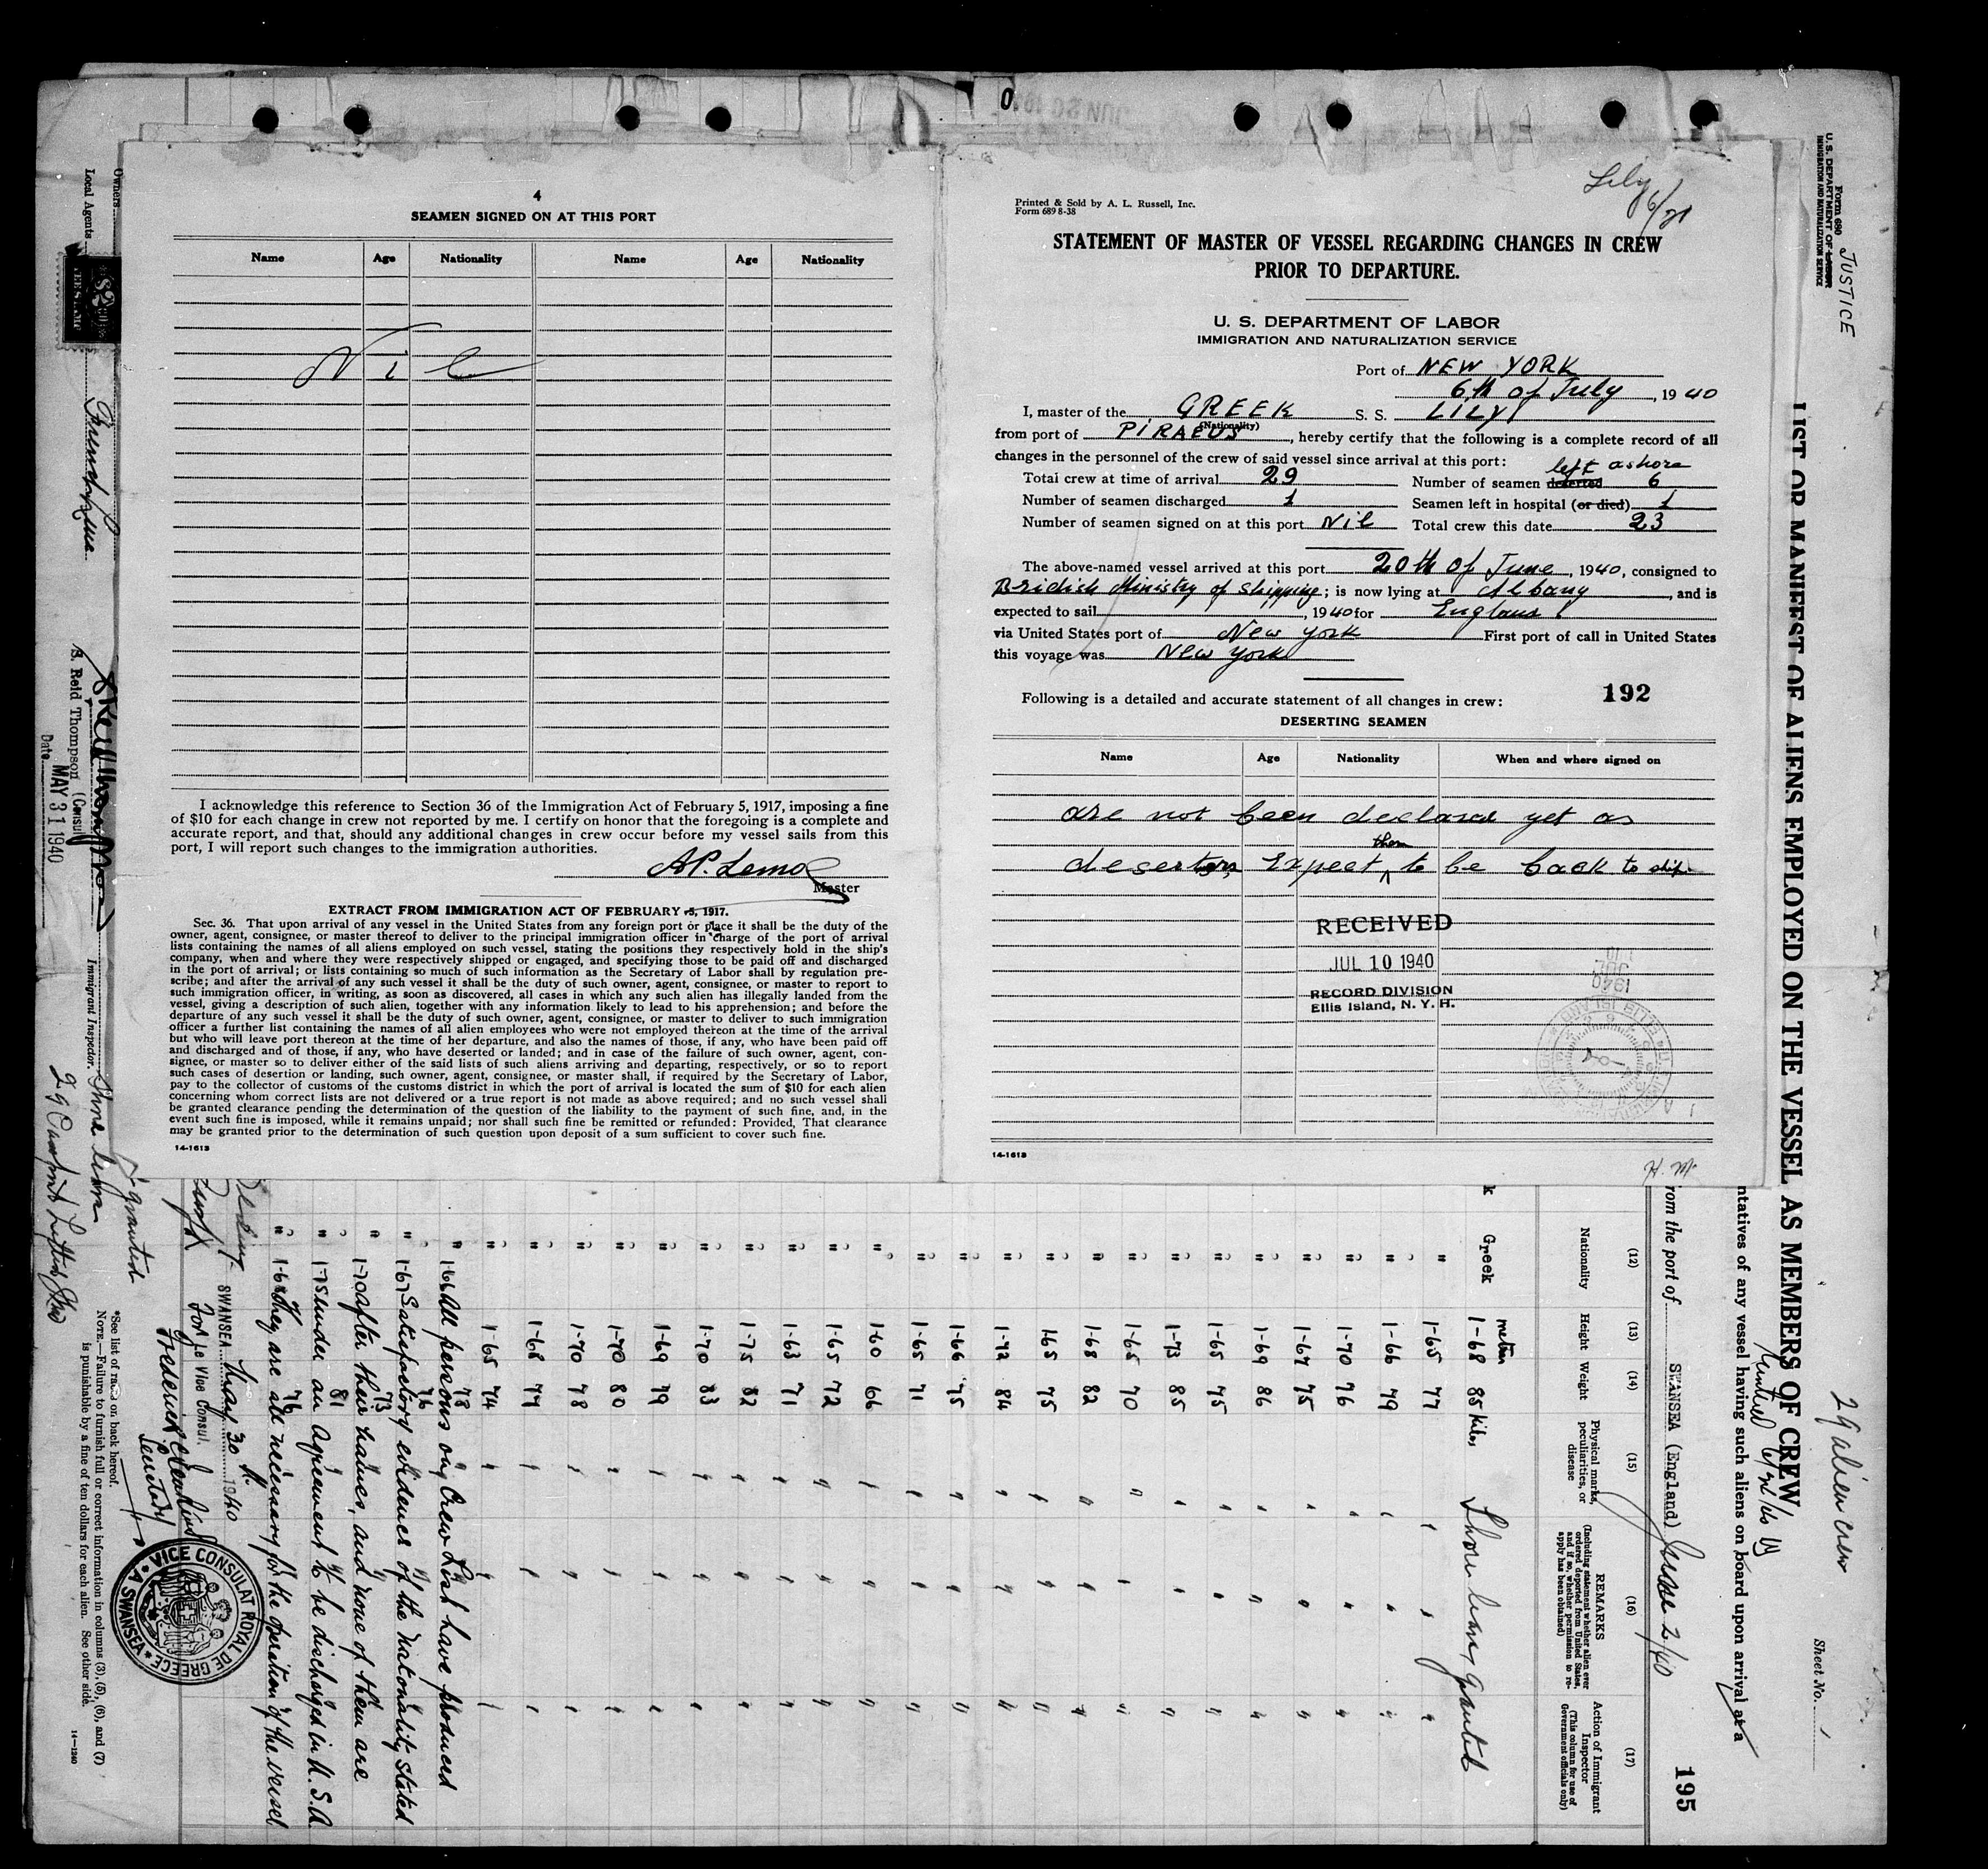 4
SEAMEN SIGNED ON AT THIS PORT
Name Age Nationality Name Age Nationality
Nil
I acknowledge this reference to Section 36 of the Immigration Act of February 5, 1917, imposing a fine
of $10 for each change in crew not reported by me. I certify on honor that the foregoing is a complete and
accurate report, and that, should any additional changes in crew occur before my vessel sails from this
port, I will report such changes to the immigration authorities.
Master
EXTRACT FROM IMMIGRATION ACT OF FEBRUARY 5, 1917.
Sec. 36. That upon arrival of any vessel in the United States from any foreign port or place it shall be the duty of the
owner, agent, consignee, or master thereof to deliver to the principal immigration officer in charge of the port of arrival
lists containing the names of all aliens employed on such vessel, stating the positions they respectively hold in the ship's
company, when and where they were respectively shipped or engaged, and specifying those to be paid off and discharged
in the port of arrival; or lists containing so much of such information as the Secretary of Labor shall by regulation pre-
scribe; and after the arrival of any such vessel it shall be the duty of such owner, agent, consignee, or master to report to
such immigration officer, in writing, as soon as discovered, all cases in which any such alien has illegally landed from the
vessel, giving a description of such alien, together with any information likely to lead to his apprehension; and before the
departure of any such vessel it shall be the duty of such owner, agent, consignee, or master to deliver to such immigration
officer a further list containing the names of all alien employees who were not employed thereon at the time of the arrival
but who will leave port thereon at the time of her departure, and also the names of those, if any, who have been paid off
and discharged and of those, if any, who have deserted or landed; and in case of the failure of such owner, agent, con-
signee, or master so to deliver either of the said lists of such aliens arriving and departing, respectively, or so to report
such cases of desertion or landing, such owner, agent, consignee, or master shall, if required by the Secretary of Labor,
pay to the collector of customs of the customs district in which the port of arrival is located the sum of $10 for each alien
concerning whom correct lists are not delivered or a true report is not made as above required; and no such vessel shall
be granted clearance pending the determination of the question of the liability to the payment of such fine, and, in the
event such fine is imposed, while it remains unpaid; nor shall such fine be remitted or refunded: Provided, That clearance
may be granted prior to the determination of such question upon deposit of a sum sufficient to cover such fine.
14-1613
Lily
6/21
Printed & Sold by A. L. Russell, Inc.
Form 689 8-38
STATEMENT OF MASTER OF VESSEL REGARDING CHANGES IN CREW
PRIOR TO DEPARTURE.
U. S. DEPARTMENT OF LABOR
IMMIGRATION AND NATURALIZATION SERVICE
Port of NEW YORK
6th of July, 1940
I, master of the GREEK S. S. LILY
(Nationality)
from port of PIRAEUS, hereby certify that the following is a complete record of all
changes in the personnel of the crew of said vessel since arrival at this port:
left ashore
Total crew at time of arrival 29 Number of seamen deserted 6
Number of seamen discharged 1 Seamen left in hospital (or died) 1
Number of seamen signed on at this port Nil Total crew this date 23
The above-named vessel arrived at this port 20th of June, 1940, consigned to
Bridish Ministry of Shipping; is now lying at Albany, and is
expected to sail , 1940 for England
via United States port of New York First port of call in United States
this voyage was New York
192
Following is a detailed and accurate statement of all changes in crew:
DESERTING SEAMEN
Name Age Nationality When and where signed on
are not been declared yet as
them
deserters, Expect to be back to ship
RECEIVED
JUL 10 1940
RECORD DIVISION
Ellis Island, N. Y. H.
14-1613
H. M.
Form 680
U. S. DEPARTMENT OF LABOR
IMMIGRATION AND NATURALIZATION SERVICE
JUSTICE
LIST OR MANIFEST OF ALIENS EMPLOYED ON THE VESSEL AS MEMBERS OF CREW
29 alien crew
Sheet No.
ntatives of any vessel having such aliens on board upon arrival at a
rom the port of SWANSEA (England)
195
(12) Nationality
(13) Height
(14) Weight
(15) Physical marks, peculiarities, or disease
(16) REMARKS
(Including statement whether alien ever ordered deported from United States, and if so, whether permission to re-apply has been obtained)
(17) Action of Immigrant Inspector
(This column for use of Government officials only)
Greek 1-68 85 kilos Shore leave granted
" 1-65 77
" 1-66 79
" 1-70 76
" 1-67 75
" 1-69 86
" 1-65 75
" 1-73 85
" 1-65 70
" 1-68 82
" 1-65 75
" 1-72 84
" 1-66 75
" 1-65 71
" 1-60 66
" 1-65 72
" 1-63 71
" 1-75 82
" 1-70 83
" 1-69 79
" 1-70 80
" 1-70 78
" 1-68 77
" 1-65 74
" 1-66 78
All persons on Crew List have produced
" 1-67 76
Satisfactory evidence of the nationality stated
" 1-70 73
after their names, and none of them are
" 1-75 81
under an Agreement to be discharged in U.S.A
" 1-68 76
They are all necessary for the operation of the vessel
SWANSEA May 30th 1940
For Le Vice Consul.
Frederick
Secretary
VICE CONSULAT ROYAL DE GREECE
A SWANSEA
*See list of races on back hereof.
NOTE.—Failure to furnish full or correct information in columns (3), (5), (6), and (7)
is punishable by a fine of ten dollars for each alien. See other side.
14-1240
Owners
Local Agents
Immigrant Inspector.
S. Reid Thompson (Consul
Date MAY 31 1940
Shore leave
granted